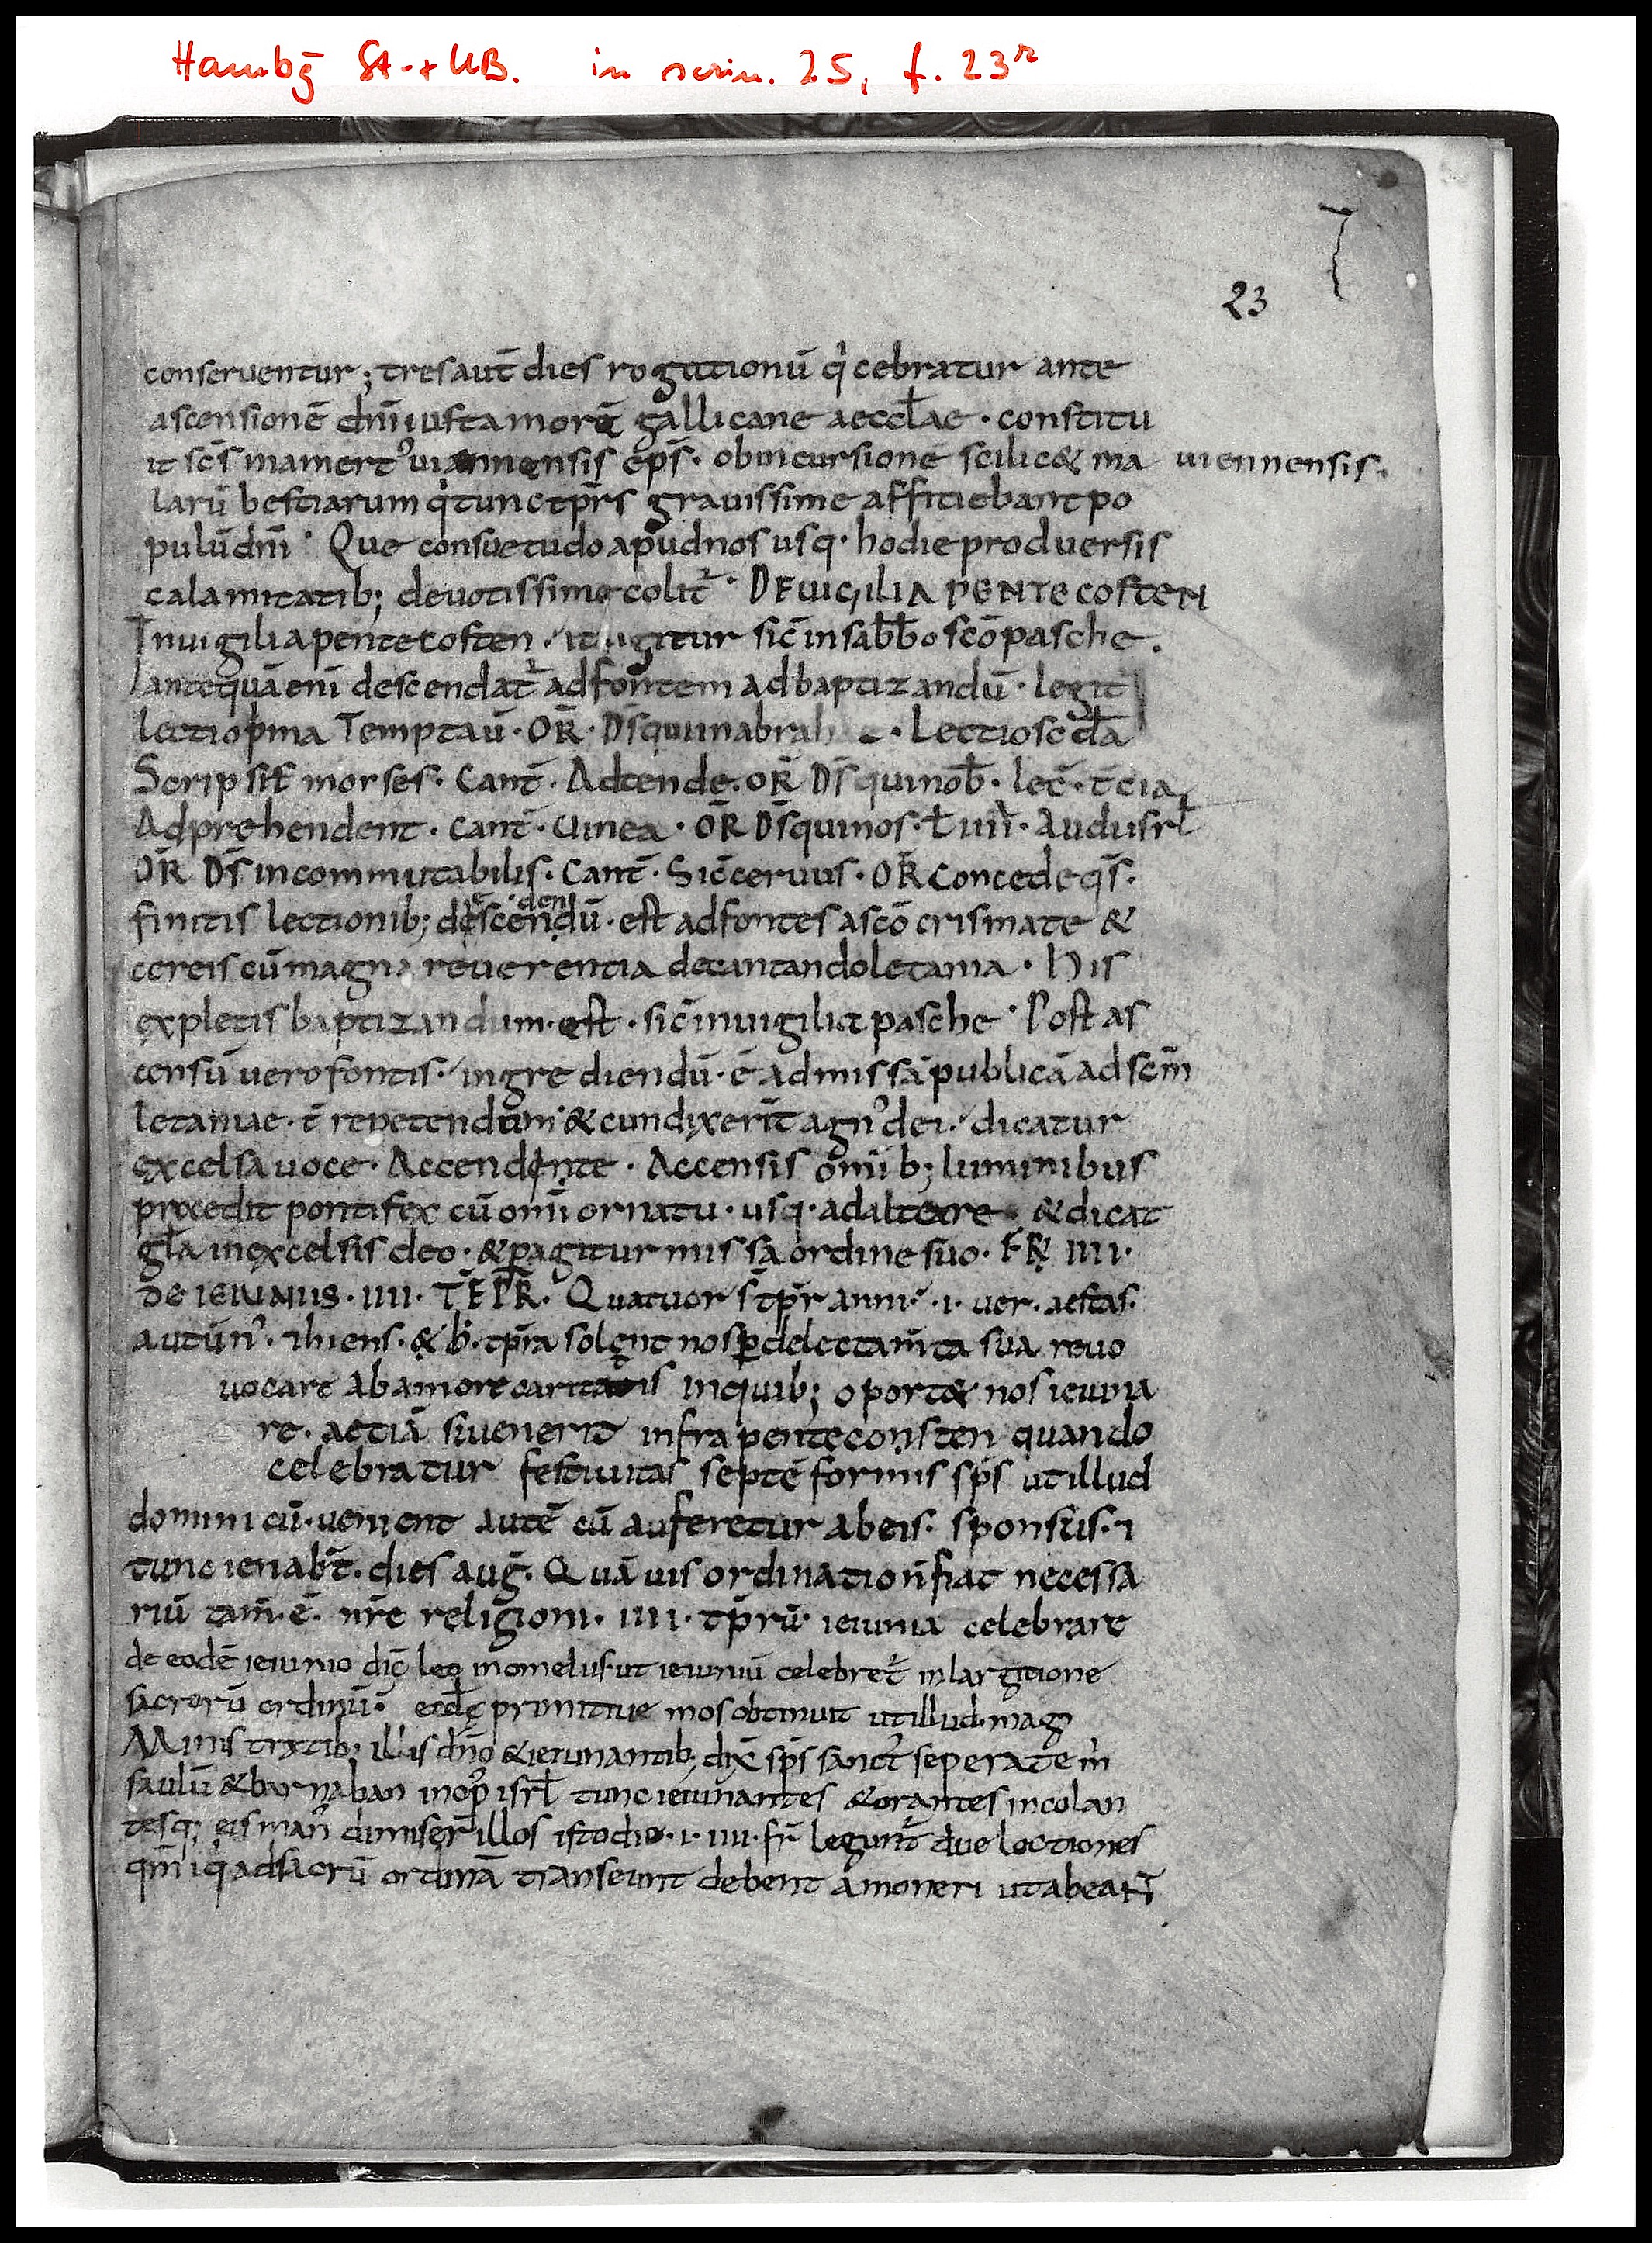 Hambg̅ St.+UB. in scrin. 25, f. 23r
23
conseruentur; tres aut̅ dies rogationu̅ q̍ cebratur ante
ascensione̅ dn̅i iusta more̅ gallicane aeccl̅ae · constitu
it sc̅s mamert᾽ ep̅s · ob incursione scilic& ma uiennensis.
laru̅ bestiarum q̍ tunc tp̅rs grauissime affitiebant po
pulu̅ dn̅i · Que consuetudo apud nos usq· hodie pro duersis
calamitatib; deuotissime colit᷑ · DE UIGILIA PENTECOSTEN
In uigilia pentecosten · sic̅ in sab̅b̅o sc̅o pasche .
antequa̅ eni̅ descendat᷑ ad fontem ad baptizandu̅ · legit
lectio p̍ma Temptau̅ · OR̅ · D̅s qui in abrah · Lectio sc̅da
Scripsit̅ morses · Cant̅ · Adtende · OR̅ D̅s qui nob̅ · lec̅ · t̅cia
Adprehendent · Cant̅ · Uinea · OR̅ D̅s qui nos · L̅ iiii · Audi isrl̅
OR̅ D̅s incommutabilis · Cant̅ · Sic̅ ceruus · OR̅ Concede qs̅ ·
finitis lectionib; descendu̅ · est ad fontes a sco̅ crismate &
den
cereis cu̅ magna reuerentia decantando letania · His
expletis baptizandum · est · sic̅ in uigilia pasche · Post as
censu̅ uero fontis · ingrediendu̅ · e̅ ad missa̅ publica̅ ad sem̅
letaniae · e̅ repetendum · & cun dixerit̅ agn᾽ dei · dicatur
excelsa uoce · Accendente · Accensis omi̅b; luminibus
procedit pontifex cu̅ omi̅ ornatu · usq· ad altare & dicat
gl̅a in excelsis deo · & p̲agitur missa ordine suo · FR̅ IIII ·
DE IEIUNIIS · IIII · TE̅PR̅ · Quatuor s̅ tp̅r anni · i · uer · aestas ·
autun᾽ · ihiens · & h̍ · tp̅ra solent nos p̲ delectam̅ta sua reuo
uocare ab amore caritatis in quib; oport& nos ieiuna
re · aetia̅ si uenerit infra penteconsten quando
celebratur festiuitas septe̅formis sp̅s ut illud
domini cu̅ · uenient aute̅ cu̅ auferetur ab eis · sponsus · ⁊
tunc ienab̅t · dies aug̅ · Qua̅uis ordination̅ fiat necessa
riu̅ tam̅ · e̅ · nr̅e religioni · IIII · tp̅ru̅ · ieiunia celebrare
de eode̅ ieiunio dic̅ leo in omeliis · ut ieiuniu̅ celebret᷑ in largitione
sacroru̅ ordinu̅ · eccl̅ę primitiue mos obtinuit ut illud · mag
Ministratib; illis dn̅o & ieiunantib; dix̅ sp̅s sanct᾽ seperate m̍
saulu̅ & barnaban in op᾽ isrl̅ tunc ieiunantes & orantes incolan
tesq; eis man᾽ dimiser̅ illos isto die · i · IIII · fr̅ legunt᷑ due lectiones
qm̅ iq̍ ad sacru̅ ordina̅ transeunt debent amoneri ut abeant̅